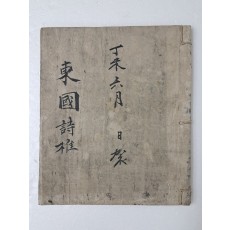 丁未六月 日
東國詩